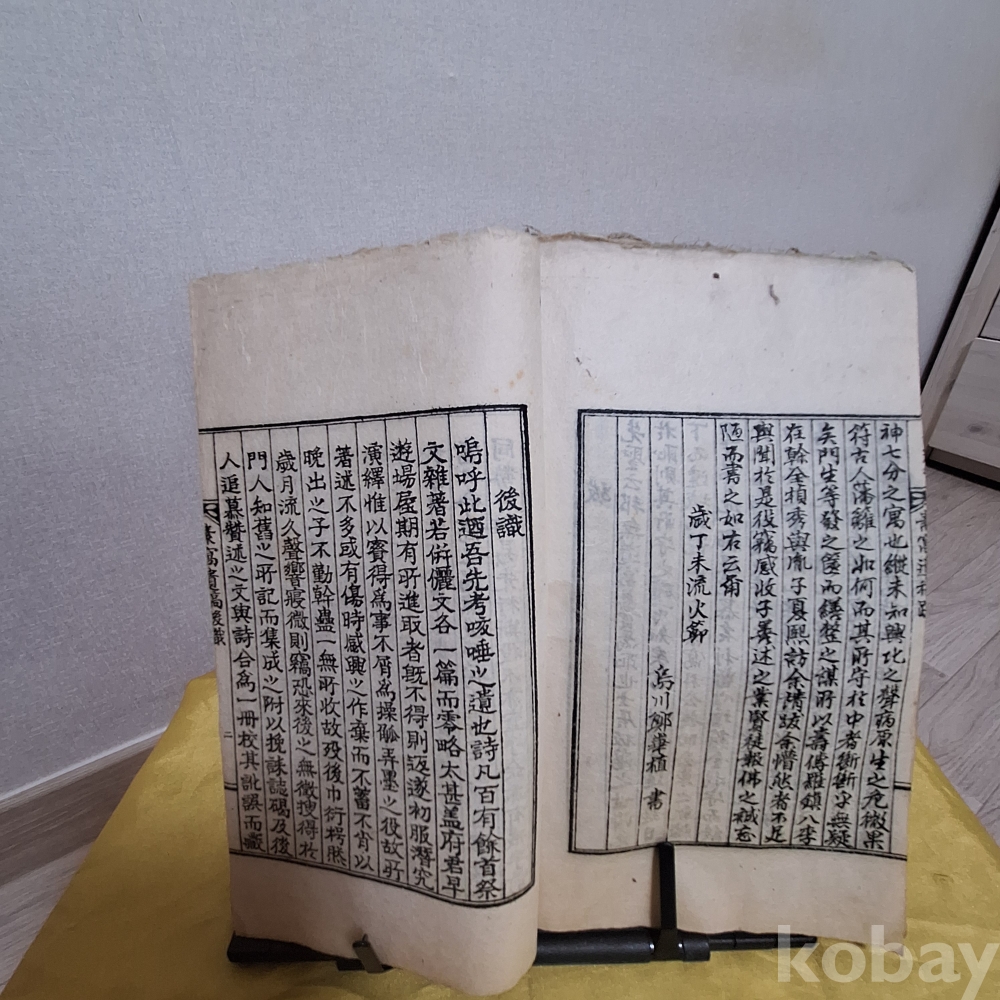 神七分之寓也縱未知興比之聲病原生之危微果
符古人藩籬之如何而其所守於中者斷斷乎無疑
矣門生等發之篋而繕整之謀所以壽傳羅鎮八李
在幹全楨秀與胤子夏熙訪余請跋余懵然者不足
與聞於是役竊感收子善述之業賢徒報佛之誠忘
陋而書之如右云爾
歲丁未流火節
烏川鄭 植 書
後識
嗚呼此迺吾先考咳唾之遺也詩凡百有餘首祭
文雜著若併儷文各一篇而零略太甚盖府君早
遊場屋期有所進取者旣不得則返遂初服潛究
演繹惟以賓得爲事不屑爲操觚弄墨之役故所
著述不多或有傷時感興之作棄而不蓄不肖以
晩出之子不勤幹蠱一無所收故歿後巾衍枵然
歲月流久聲響寢微則竊恐來後之無徵搜得於
門人知舊之所記而集成之附以挽誄誌碣及後
人追慕贊述之文與詩合爲一冊校其訛誤而藏
寓遺稿後識
二
kobay